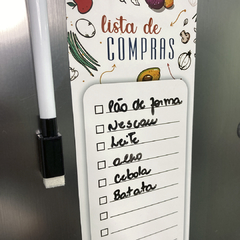 lista de
COMPRAS
Pão de forma
Nescau
Leite
alho
cebola
Batata